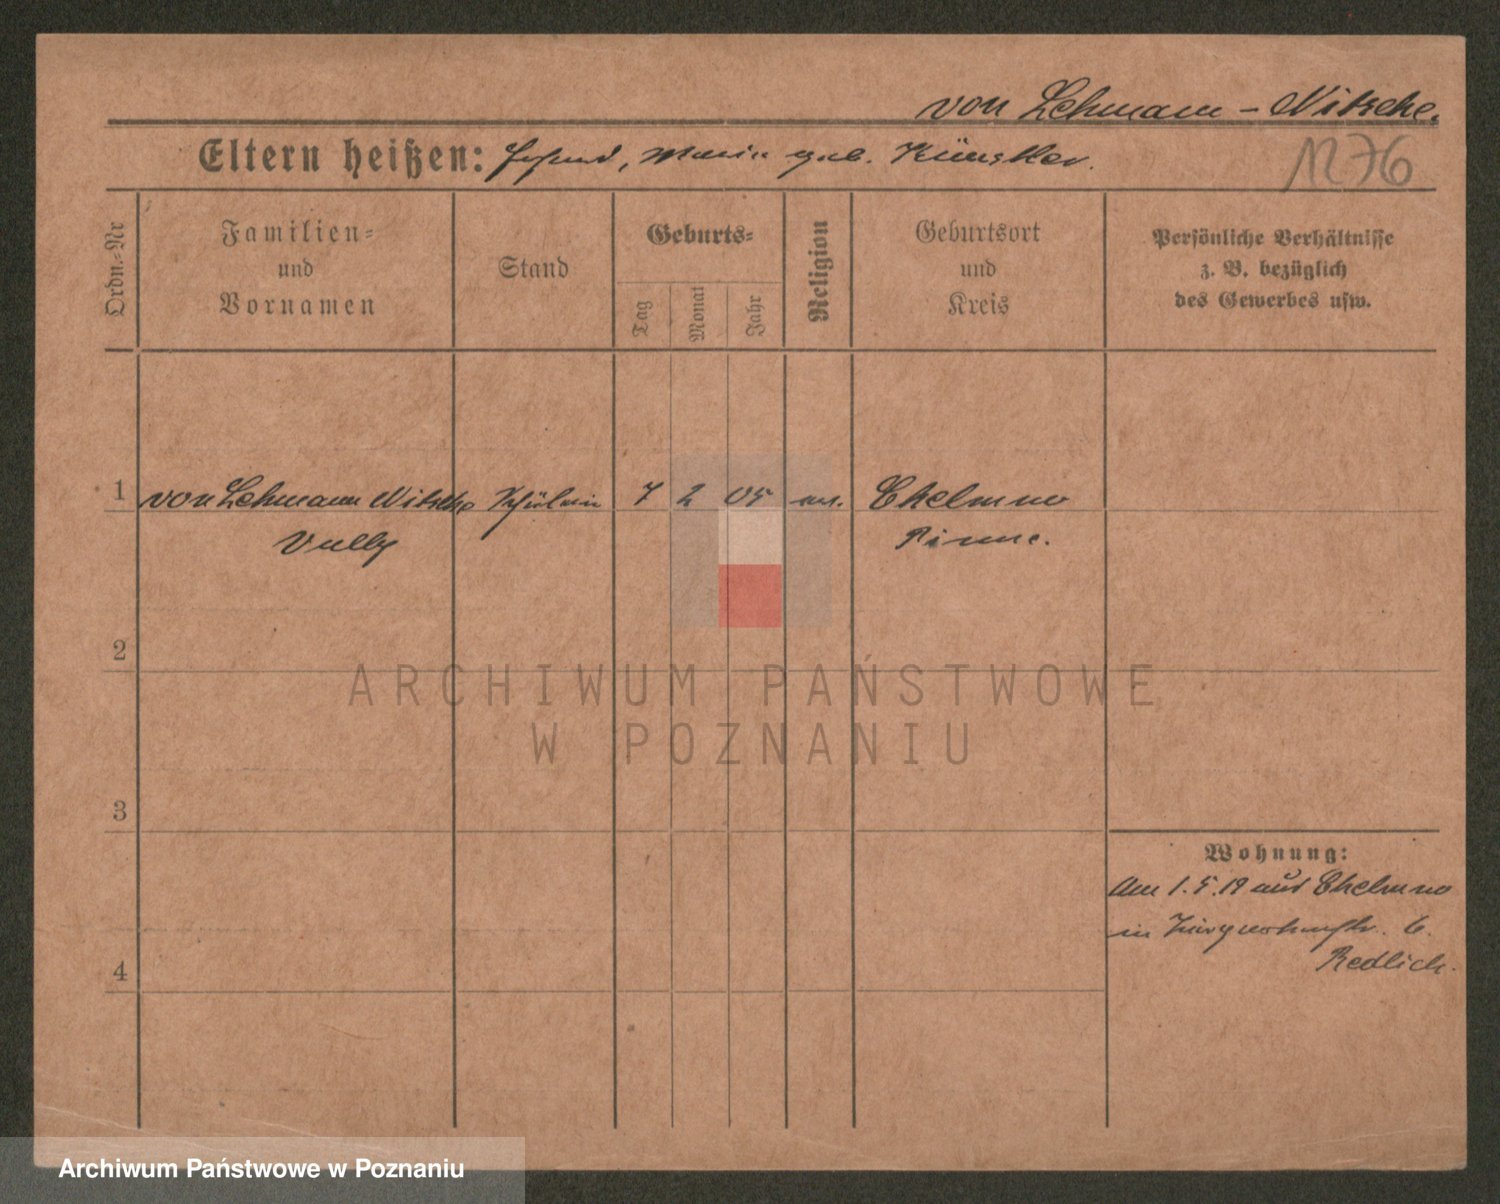 von Lehmann-Nitsche.
Eltern heißen: Maria geb. Künstler.
1276
Ordn.-Nr
Familien-
und
Vornamen
Stand
Geburts-
Tag
Monat
Jahr
Religion
Geburtsort
und
Kreis
Persönliche Verhältnisse
z. B. bezüglich
des Gewerbes usw.
1 von Lehmann Nitsche Schülerin 7 2 05 ev. Chelmno
Pinne.
2
3
4
Wohnung:
Am 1.5.19 aus Chelmno
in 6.
Redlich.
ARCHIWUM PAŃSTWOWE
W POZNANIU
Archiwum Państwowe w Poznaniu